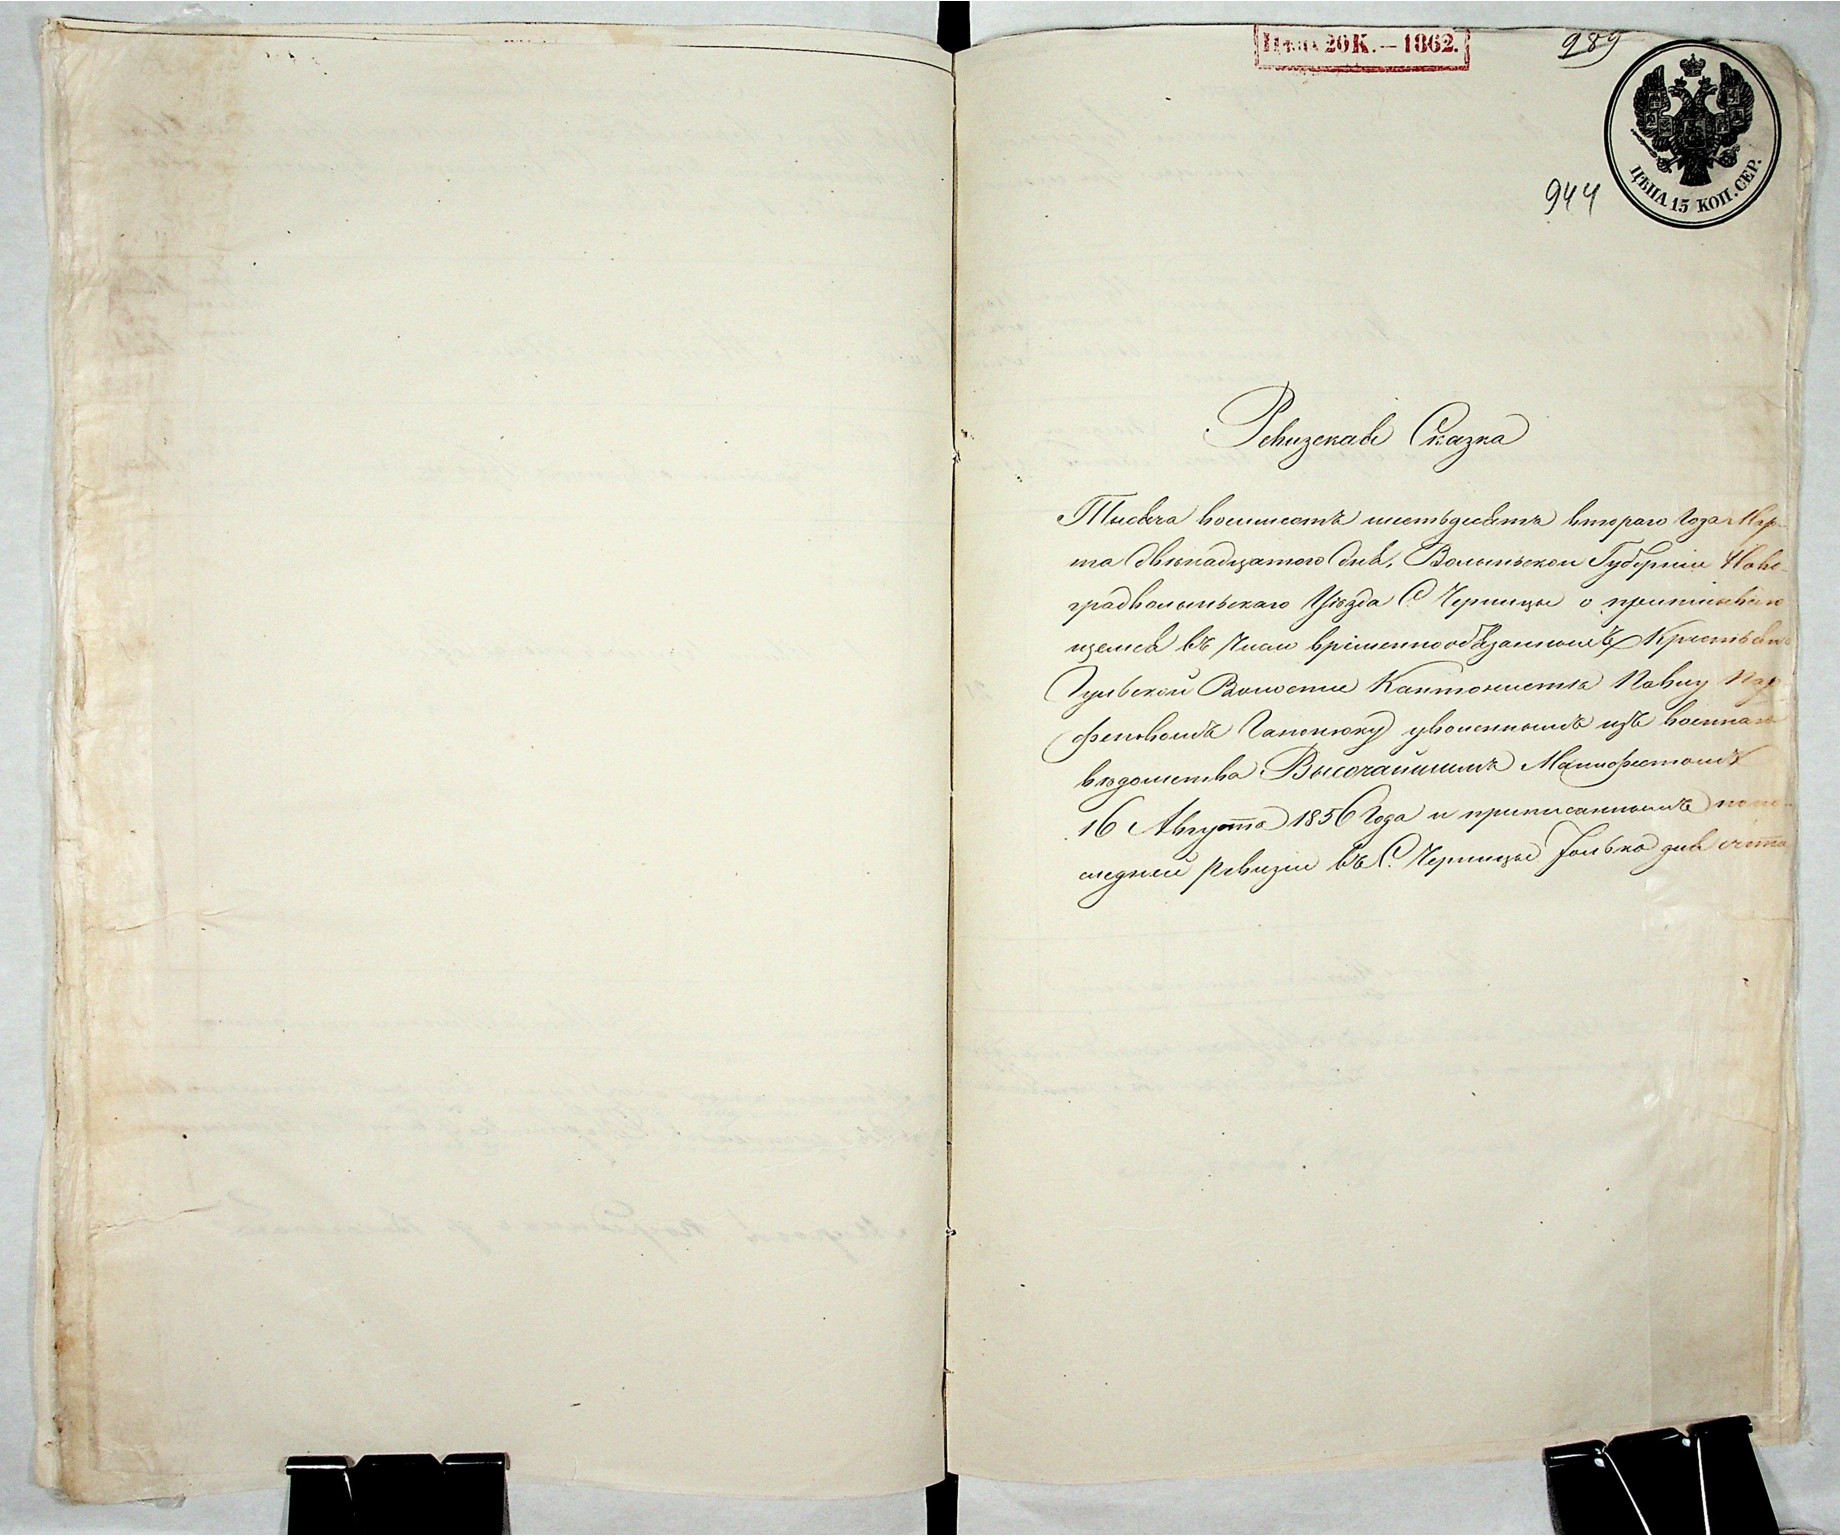 Цѣна 20 К. — 1862.
989
ЦѢНА 15 КОП. СЕР.
944
Ревизская Сказка
Тысяча восемсотъ шестьдесятъ втораго Года Мар-
та двѣнадцатого дня, Волынской Губерніи Ново-
градволынскаго Уѣзда С. Черницы о приписываю
щемся въ число временнообязанныхъ Крестьянъ
Гульской Волости Кантонистѣ Павлу Пар
феновомъ Гапонюку уволенномъ изъ военнаго
вѣдомства Высочайшимъ Манифестомъ
16 Августа 1856 Года и приписанномъ по по-
слѣдней ревизіи въ С. Черницы только для счета